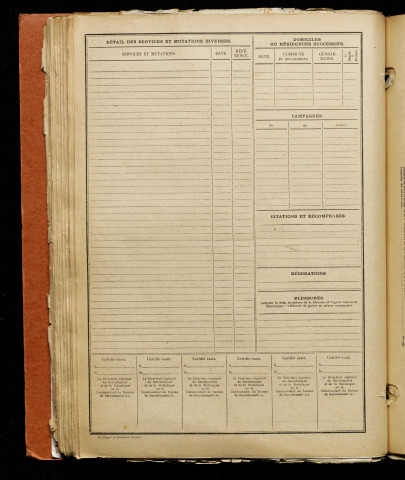 DÉTAIL DES SERVICES ET MUTATIONS DIVERSES.
SERVICES ET MUTATIONS. DATE. RÉFÉ-
RENCE.
DOMICILES
OU RÉSIDENCES SUCCESSIFS.
DATE. COMMUNE
ET DÉPARTEMENT. GENDAR-
MERIE.
CAMPAGNES
du au
CITATIONS ET RÉCOMPENSES
DÉCORATIONS
BLESSURES
Certifié exact, Certifié exact, Certifié exact, Certifié exact, Certifié exact, Certifié exact,
A A A A A A
Le Directeur régional Le Directeur régional Le Directeur régional Le Directeur régional Le Directeur régional Le Directeur régional
du Recrutement du Recrutement du Recrutement du Recrutement du Recrutement du Recrutement
et de la Statistique et de la Statistique et de la Statistique et de la Statistique et de la Statistique et de la Statistique
ou le ou le ou le ou le ou le ou le
Commandant du Bureau Commandant du Bureau Commandant du Bureau Commandant du Bureau Commandant du Bureau Commandant du Bureau
de Recrutement (1). de Recrutement (1). de Recrutement (1). de Recrutement (1). de Recrutement (1). de Recrutement (1).